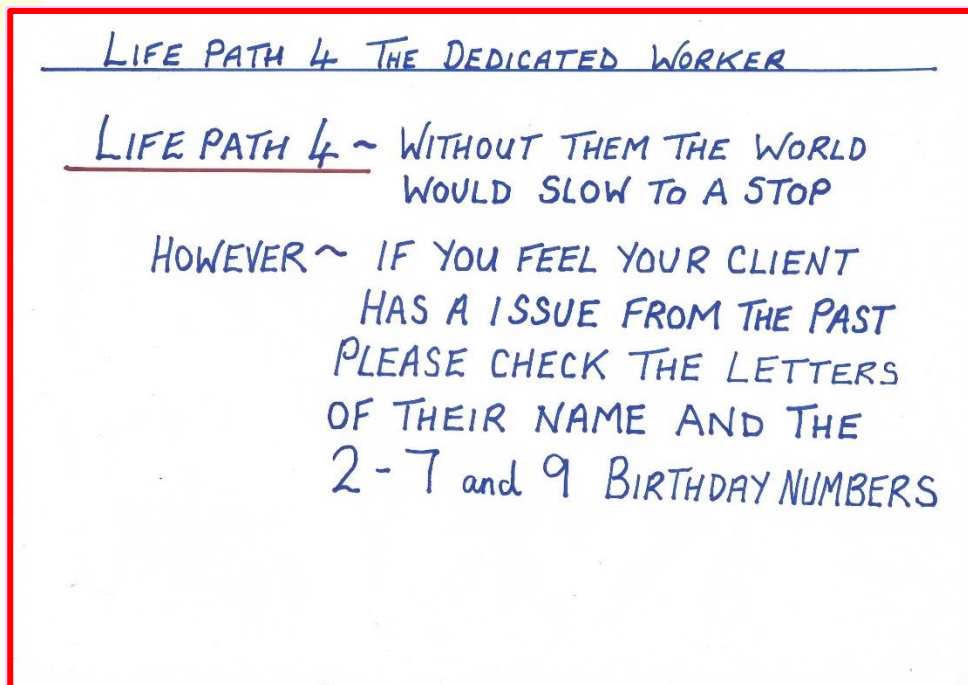 LIFE PATH 4 THE DEDICATED WORKER
LIFE PATH 4 ~ WITHOUT THEM THE WORLD
WOULD SLOW TO A STOP
HOWEVER ~ IF YOU FEEL YOUR CLIENT
HAS A ISSUE FROM THE PAST
PLEASE CHECK THE LETTERS
OF THEIR NAME AND THE
2 - 7 and 9 BIRTHDAY NUMBERS